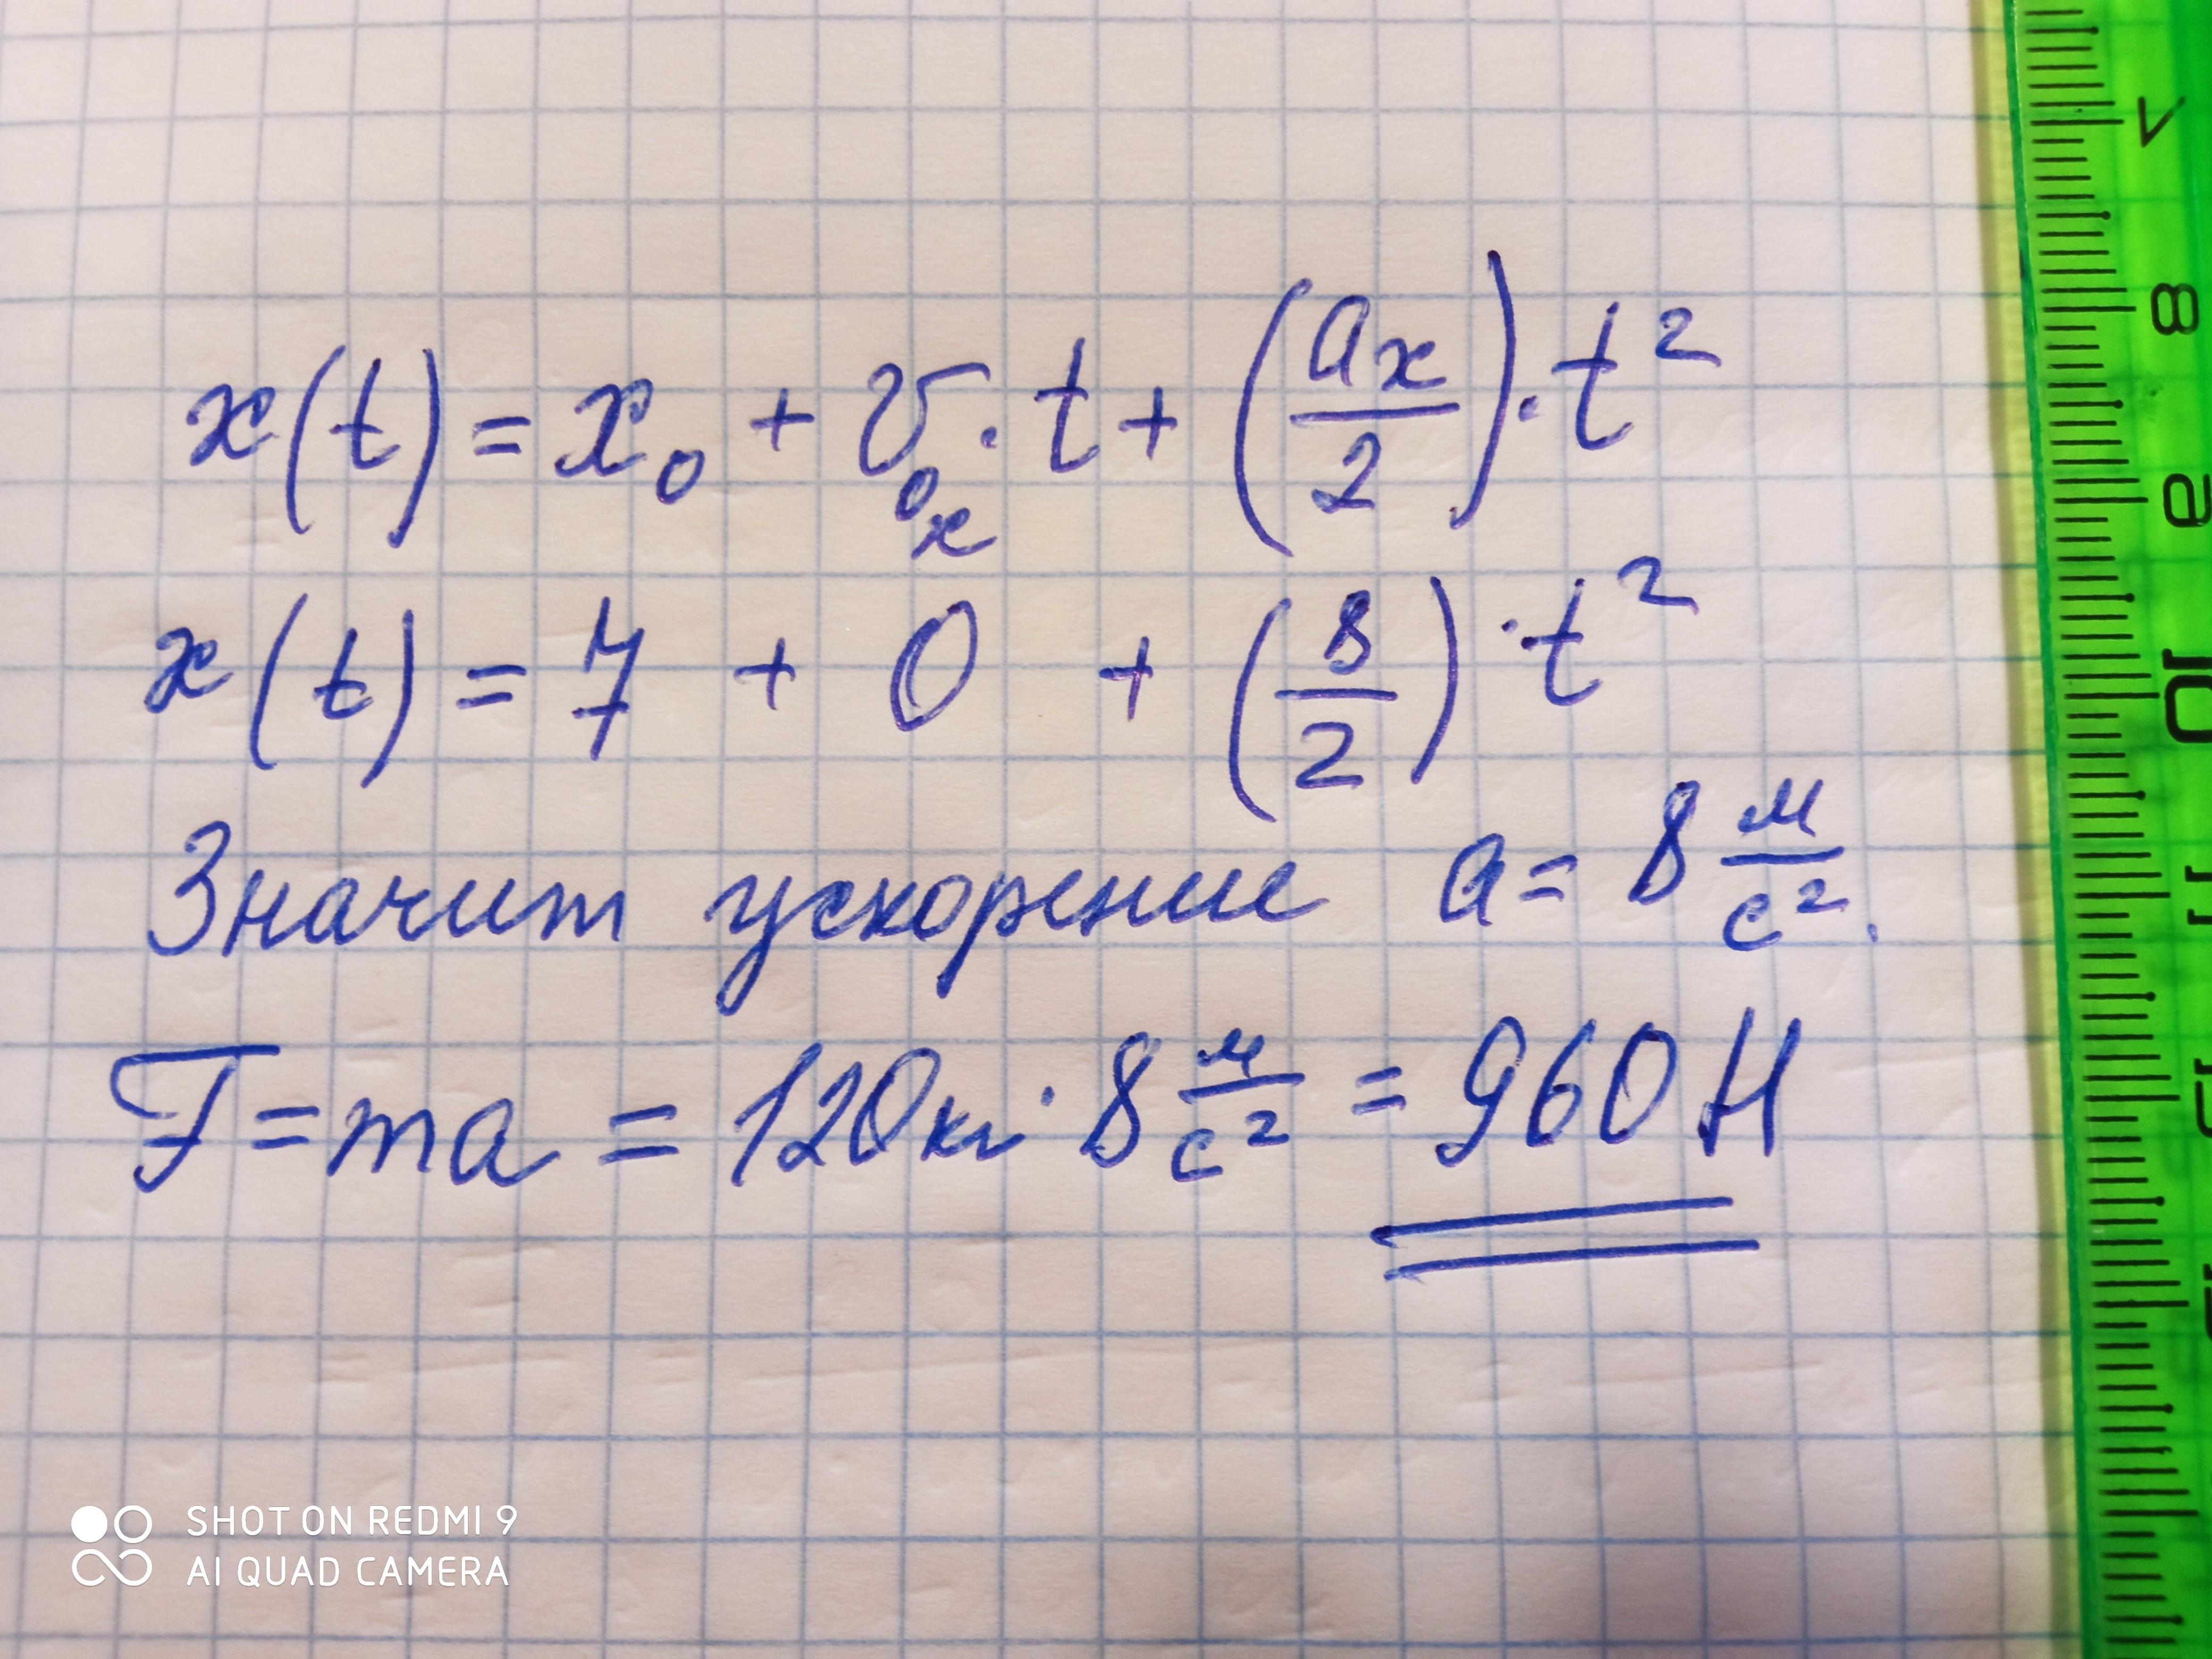 x(t) = x₀ + v₀ₓ · t + (aₓ/2) · t²
x(t) = 7 + 0 + (8/2) · t²
Значит ускорение a = 8 м/с².
F = ma = 120 кг · 8 м/с² = 960 Н
7
8
9
10
11
SHOT ON REDMI 9
AI QUAD CAMERA